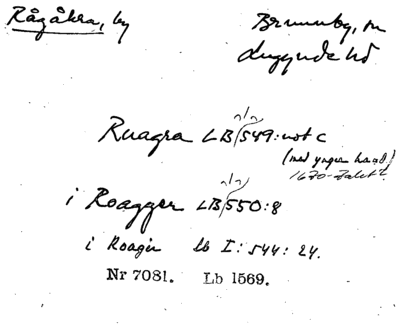 Rågåkra, by
Brunnby, sn
Luggude hd
Ruagra LB 549: not c
(med yngre hand,
1670-talet?
i Roagger LB 550:8
i Roagir lb I: 544: 24.
Nr 7081. Lb 1569.